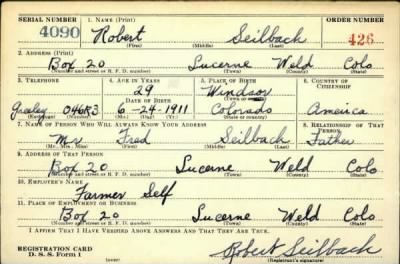 SERIAL NUMBER 1. NAME (Print) ORDER NUMBER
4090 Robert Seilbach 426
(First) (Middle) (Last)
2. ADDRESS (Print)
Box 20 Lucerne Weld Colo
(Number and street or R. F. D. number) (Town) (County) (State)
3. TELEPHONE 4. AGE IN YEARS 5. PLACE OF BIRTH 6. COUNTRY OF CITIZENSHIP
29 Windsor
DATE OF BIRTH (Town or county)
Greeley 046R3 6-24-1911 Colorado America
(Exchange) (Number) (Mo.) (Day) (Yr.) (State or country)
7. NAME OF PERSON WHO WILL ALWAYS KNOW YOUR ADDRESS 8. RELATIONSHIP OF THAT PERSON
Mr Fred Seilbach Father
(Mr., Mrs., Miss) (First) (Middle) (Last)
9. ADDRESS OF THAT PERSON
Box 20 Lucerne Weld Colo
(Number and street or R. F. D. number) (Town) (County) (State)
10. EMPLOYER'S NAME
Farmer Self
11. PLACE OF EMPLOYMENT OR BUSINESS
Box 20 Lucerne Weld Colo
(Number and street or R. F. D. number) (Town) (County) (State)
I AFFIRM THAT I HAVE VERIFIED ABOVE ANSWERS AND THAT THEY ARE TRUE.
REGISTRATION CARD
D. S. S. Form 1 (over) Robert Seilbach
(Registrant's signature)